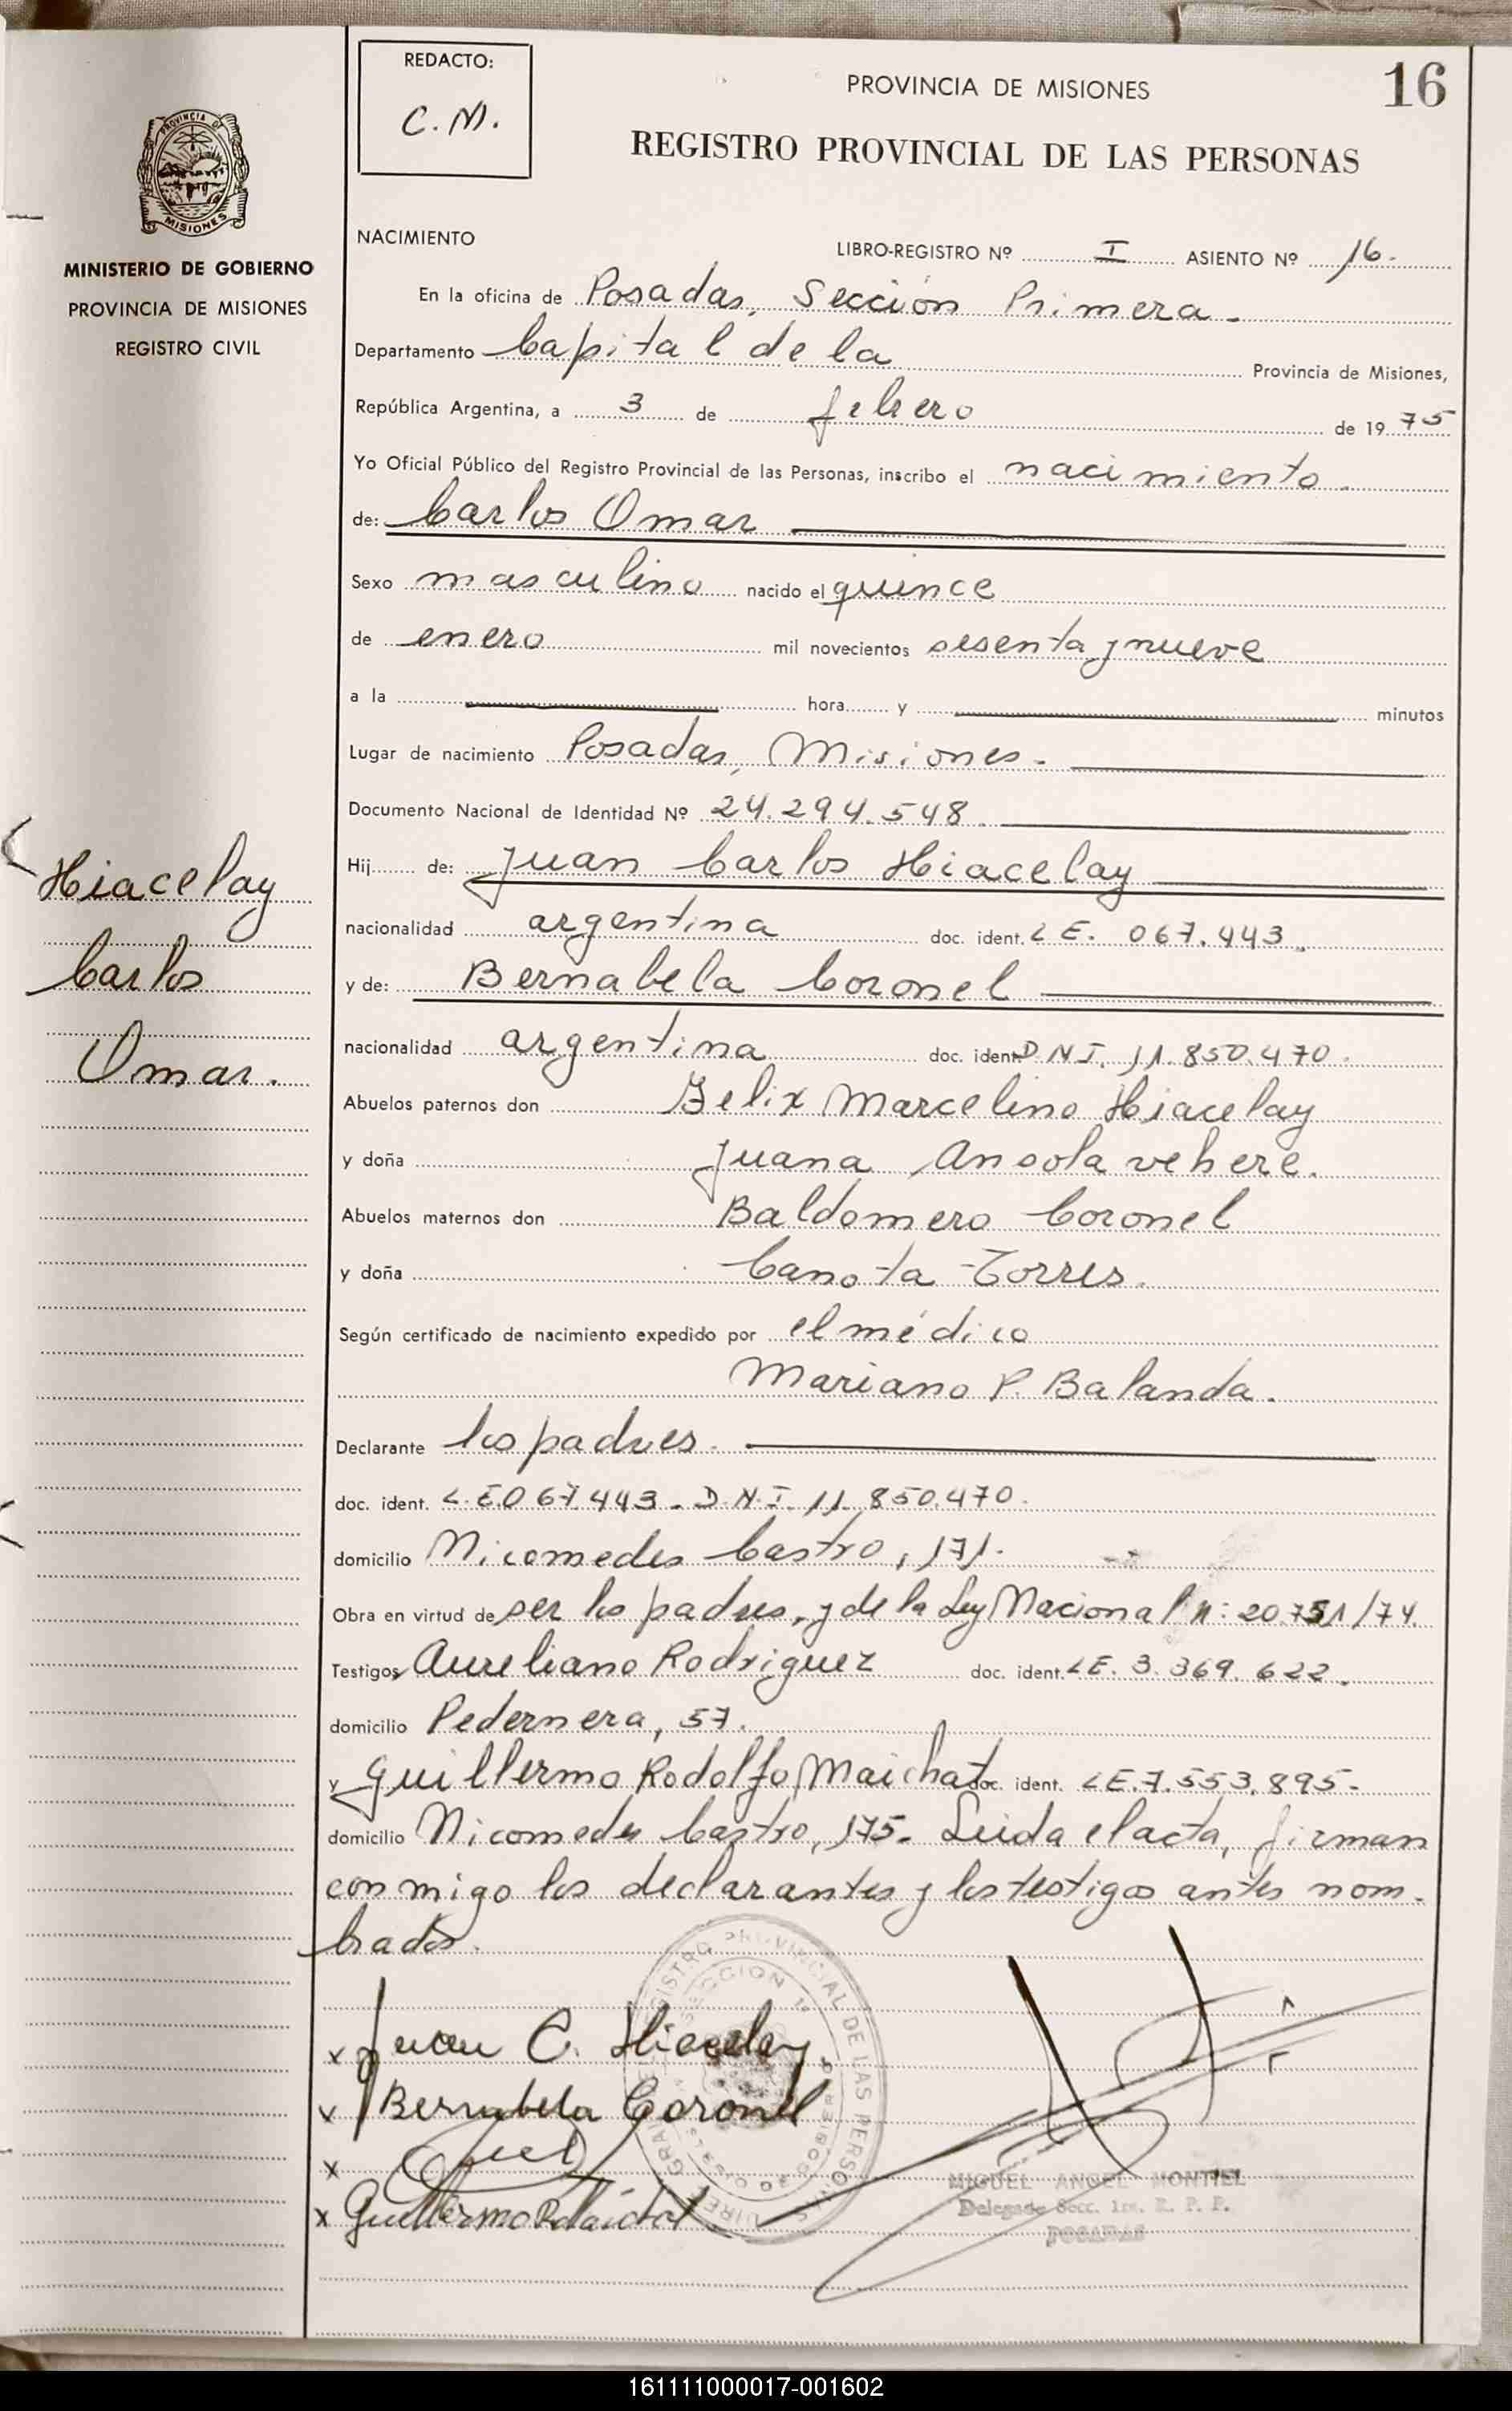 REDACTO:
C.M.
16
PROVINCIA DE MISIONES
REGISTRO PROVINCIAL DE LAS PERSONAS
PROVINCIA DE
MISIONES
MINISTERIO DE GOBIERNO
PROVINCIA DE MISIONES
REGISTRO CIVIL
NACIMIENTO
LIBRO-REGISTRO Nº I ASIENTO Nº 16.
En la oficina de Posadas, Sección Primera.
Departamento Capital de la Provincia de Misiones,
República Argentina, a 3 de febrero de 1975
Yo Oficial Público del Registro Provincial de las Personas, inscribo el nacimiento.
de: Carlos Omar
Sexo masculino nacido el quince
de enero mil novecientos sesenta y nueve
a la hora y minutos
Lugar de nacimiento Posadas, Misiones.
Documento Nacional de Identidad Nº 24.294.548
Hij de: Juan Carlos Hiacelay
nacionalidad argentina doc. ident. L E. 067.443.
y de: Bernabela Coronel
nacionalidad argentina doc. ident. D N I. 11.850.470.
Abuelos paternos don Felix Marcelino Hiacelay
y doña Juana Ansola vehere.
Abuelos maternos don Baldomero Coronel
y doña Canota Torres.
Según certificado de nacimiento expedido por el médico
Mariano P. Balanda.
Declarante los padres.
doc. ident. L.E.067.443. D.N.I. 11.850.470.
domicilio Nicomedes Castro, 171.
Obra en virtud de ser los padres, y de la Ley Nacional n: 20.751/74.
Testigos Aureliano Rodriguez doc. ident. L E. 3.369.622.
domicilio Pedernera, 57.
y Guillermo Rodolfo Maichat doc. ident. L E. 7.553.895.
domicilio Nicomedes Castro, 175. Leida el acta, firman
conmigo los declarantes y los testigos antes nom-
brados.
Hiacelay
Carlos
Omar.
x Juan C. Hiacelay
x Bernabela Coronel
x
x Guillermo R Maichat
REGISTRO PROVINCIAL DE LAS PERSONAS
SECCION 1ª
MIGUEL ANGEL MONTIEL
Delegado Secc. 1ra. R. P. P.
POSADAS
161111000017-001602